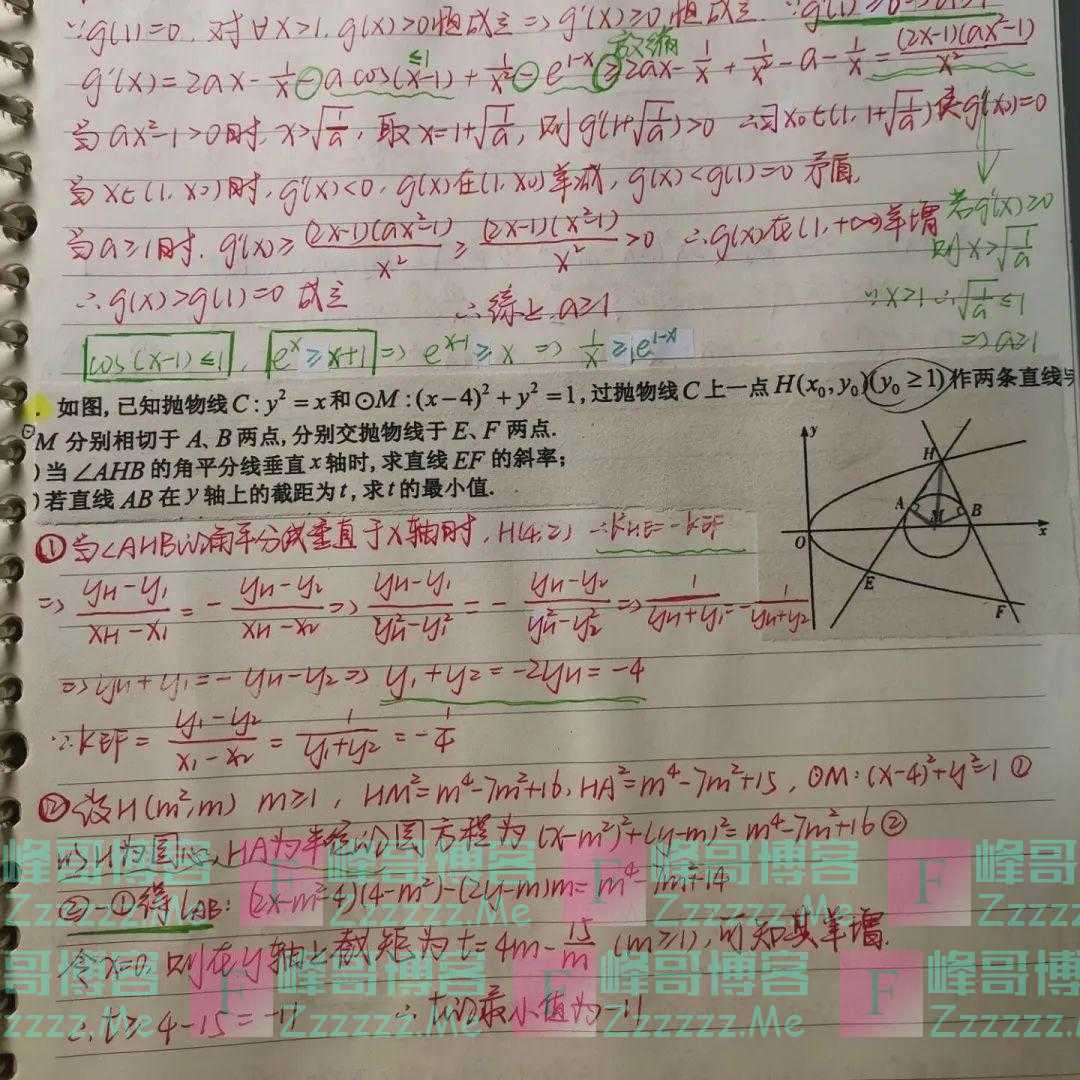 ∵g(1)=0, 对∀x>1, g(x)>0恒成立 ⇒ g'(x)≥0 恒成立. ∵g'(1)≥0⇒a≥1
≤1 放缩
g'(x)=2ax-1/x-a cos(x-1)+1/x²-e^{1-x}≥2ax-1/x+1/x²-a-1/x=(2x-1)(ax²-1)/x²
当ax²-1>0时, x>√(1/a), 取x=1+√(1/a), 则g'(1+√(1/a))>0 ∴∃x₀∈(1,1+√(1/a))使g'(x₀)=0
当x∈(1,x₀)时, g'(x)<0, g(x)在(1,x₀)单减, g(x)<g(1)=0 矛盾.
当a≥1时. g'(x)≥(2x-1)(ax²-1)/x²≥(2x-1)(x²-1)/x²>0 ∴g(x)在(1,+∞)单增
若g'(x)≥0
则x>√(1/a)
∵x>1 ∴√(1/a)≤1
⇒a≥1
∴g(x)>g(1)=0 成立 ∴综上 a≥1
cos(x-1)≤1, e^x≥x+1 ⇒ e^{x-1}≥x ⇒ 1/x≥e^{1-x}
. 如图, 已知抛物线C:y²=x和⊙M:(x-4)²+y²=1, 过抛物线C上一点H(x₀,y₀)(y₀≥1)作两条直线与
⊙M 分别相切于A、B两点, 分别交抛物线于E、F两点.
)当∠AHB的角平分线垂直x轴时, 求直线EF的斜率;
)若直线AB在y轴上的截距为t, 求t的最小值.
y
H
A
M
B
O
x
E
F
①当∠AHB的角平分线垂直于x轴时, H(4,2) ∴kHE=-kEF
⇒(yH-y₁)/(xH-x₁)=-(yH-y₂)/(xH-x₂)⇒(yH-y₁)/(yH²-y₁²)=-(yH-y₂)/(yH²-y₂²)⇒1/(yH+y₁)=-1/(yH+y₂)
⇒yH+y₁=-yH-y₂⇒y₁+y₂=-2yH=-4
∴kEF=(y₁-y₂)/(x₁-x₂)=1/(y₁+y₂)=-1/4
②设H(m²,m) m≥1, HM²=m⁴-7m²+16, HA²=m⁴-7m²+15, ⊙M:(x-4)²+y²=1 ①
以H为圆心, HA为半径的圆方程为(x-m²)²+(y-m)²=m⁴-7m²+16②
②-①得lAB: (2x-m²-4)(4-m²)-(2y-m)m=m⁴-7m²+14
令x=0, 则在y轴上截距为t=4m-15/m (m≥1), 可知其单增.
∴t≥4-15=-11 ∴t的最小值为-11
F 峰哥博客
Zzzzzz.Me